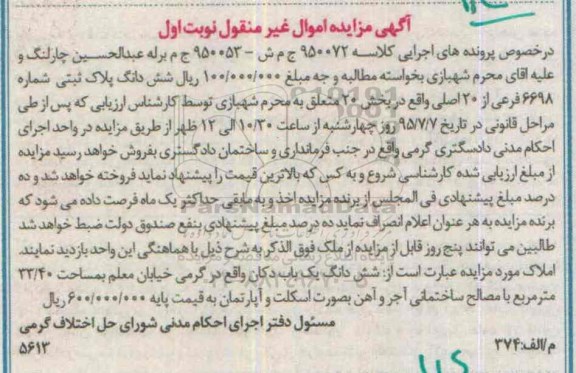 آگهی مزایده اموال غیر منقول نوبت اول
درخصوص پرونده های اجرایی کلاسه ۹۵۰۰۷۲ ج م ش – ۹۵۰۰۵۳ ج م برله عبدالحسین چارلنگ و
علیه اقای محرم شهبازی بخواسته مطالبه و جه مبلغ ۱۰۰/۰۰۰/۰۰۰ ریال شش دانگ پلاک ثبتی شماره
۶۶۹۸ فرعی از ۲۰ اصلی واقع در بخش ۲۰ متعلق به محرم شهبازی توسط کارشناس ارزیابی که پس از طی
مراحل قانونی در تاریخ ۹۵/۷/۷ روز چهارشنبه از ساعت ۱۰/۳۰ الی ۱۲ ظهر از طریق مزایده در واحد اجرای
احکام مدنی دادسگتری گرمی واقع در جنب فرمانداری و ساختمان دادگستری بفروش خواهد رسید مزایده
از مبلغ ارزیابی شده کارشناسی شروع و به کس که بالاترین قیمت را پیشنهاد نماید فروخته خواهد شد و ده
درصد مبلغ پیشنهادی فی المجلس از برنده مزایده اخذ و به مابقی حداکثر یک ماه فرصت داده می شود که
برنده مزایده به هر عنوان اعلام انصراف نماید ده درصد مبلغ پیشنهادی بنفع صندوق دولت ضبط خواهد شد
طالبین می توانند پنج روز قابل از مزایده از ملک فوق الذکر به شرح ذیل با هماهنگی این واحد بازدید نمایند.
املاک مورد مزایده عبارت است از: شش دانگ یک باب دکان واقع در گرمی خیابان معلم بمساحت ۳۳/۴۰
مترمربع با مصالح ساختمانی آجر و آهن بصورت اسکلت و آپارتمان به قیمت پایه ۶۰۰/۰۰۰/۰۰۰ ریال
مسئول دفتر اجرای احکام مدنی شورای حل اختلاف گرمی
م/الف:۳۷۴ ۵۶۱۳